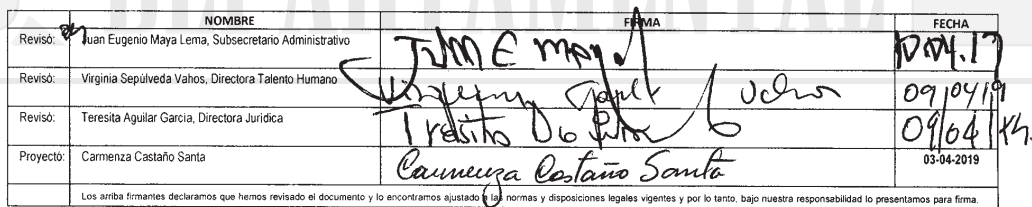 NOMBRE FIRMA FECHA
Revisó: Juan Eugenio Maya Lema, Subsecretario Administrativo
Revisó: Virginia Sepúlveda Vahos, Directora Talento Humano 09/04/19
Revisó: Teresita Aguilar Garcia, Directora Jurídica 09/04/19
Proyectó: Carmenza Castaño Santa Carmenza Castaño Santa 03-04-2019
Los arriba firmantes declaramos que hemos revisado el documento y lo encontramos ajustado a las normas y disposiciones legales vigentes y por lo tanto, bajo nuestra responsabilidad lo presentamos para firma.